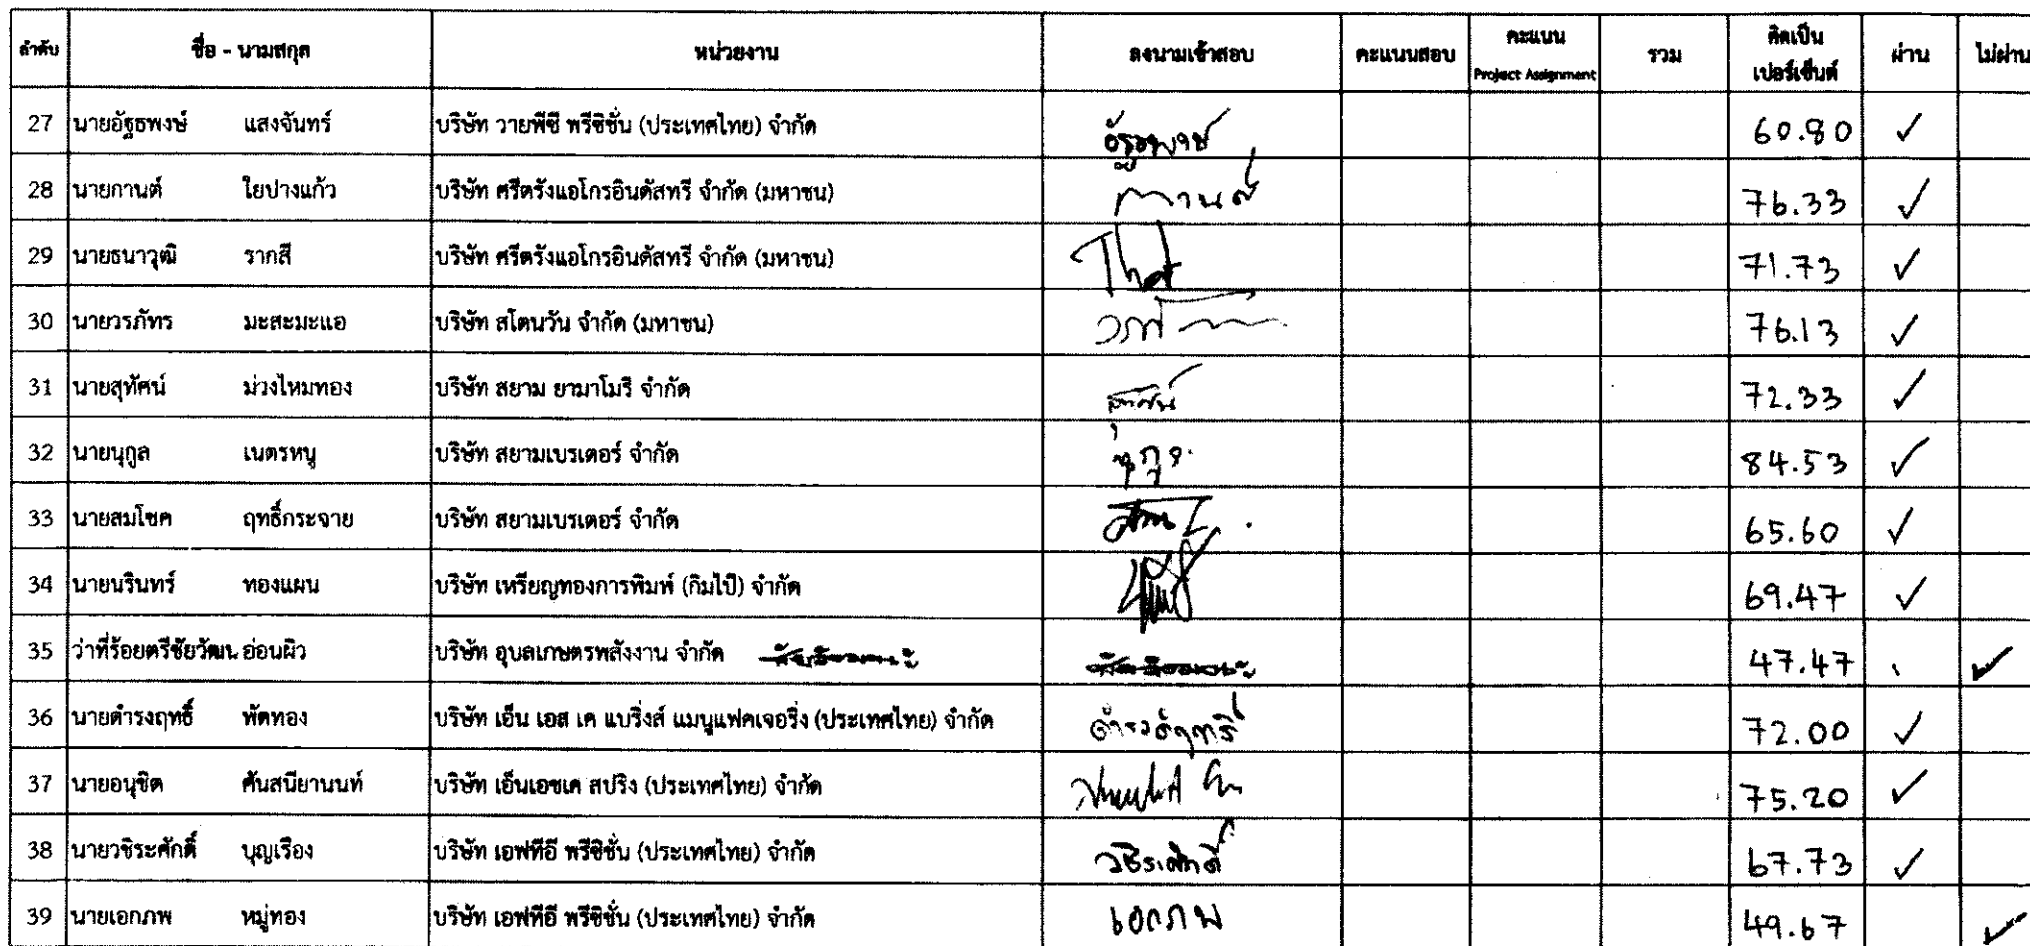 ลำดับ ชื่อ - นามสกุล หน่วยงาน ลงนามเข้าสอบ คะแนนสอบ คะแนน Project Assignment รวม คิดเป็นเปอร์เซ็นต์ ผ่าน ไม่ผ่าน
27 นายอัฐธพงษ์ แสงจันทร์ บริษัท วายพีซี พรีซิชั่น (ประเทศไทย) จำกัด อัฐธพงษ์ 60.80 ✓
28 นายกานต์ ใยปางแก้ว บริษัท ศรีตรังแอโกรอินดัสทรี จำกัด (มหาชน) กานต์ 76.33 ✓
29 นายธนาวุฒิ รากสี บริษัท ศรีตรังแอโกรอินดัสทรี จำกัด (มหาชน) 71.73 ✓
30 นายวรภัทร มะสะมะแอ บริษัท สโตนวัน จำกัด (มหาชน) 76.13 ✓
31 นายสุทัศน์ ม่วงไหมทอง บริษัท สยาม ยามาโมริ จำกัด สุทัศน์ 72.33 ✓
32 นายนุกูล เนตรหนู บริษัท สยามเบรเตอร์ จำกัด นุกูล 84.53 ✓
33 นายสมโชค ฤทธิ์กระจาย บริษัท สยามเบรเตอร์ จำกัด 65.60 ✓
34 นายนรินทร์ ทองแผน บริษัท เหรียญทองการพิมพ์ (กิมไป๊) จำกัด 69.47 ✓
35 ว่าที่ร้อยตรีชัยวัฒน อ่อนผิว บริษัท อุบลเกษตรพลังงาน จำกัด 47.47 ✓
36 นายดำรงฤทธิ์ พัดทอง บริษัท เอ็น เอส เค แบริ่งส์ แมนูแฟคเจอริ่ง (ประเทศไทย) จำกัด 72.00 ✓
37 นายอนุชิต ศันสนียานนท์ บริษัท เอ็นเอชเค สปริง (ประเทศไทย) จำกัด 75.20 ✓
38 นายวชิระศักดิ์ บุญเรือง บริษัท เอฟทีอี พรีซิชั่น (ประเทศไทย) จำกัด วชิระศักดิ์ 67.73 ✓
39 นายเอกภพ หมู่ทอง บริษัท เอฟทีอี พรีซิชั่น (ประเทศไทย) จำกัด เอกภพ 49.67 ✓